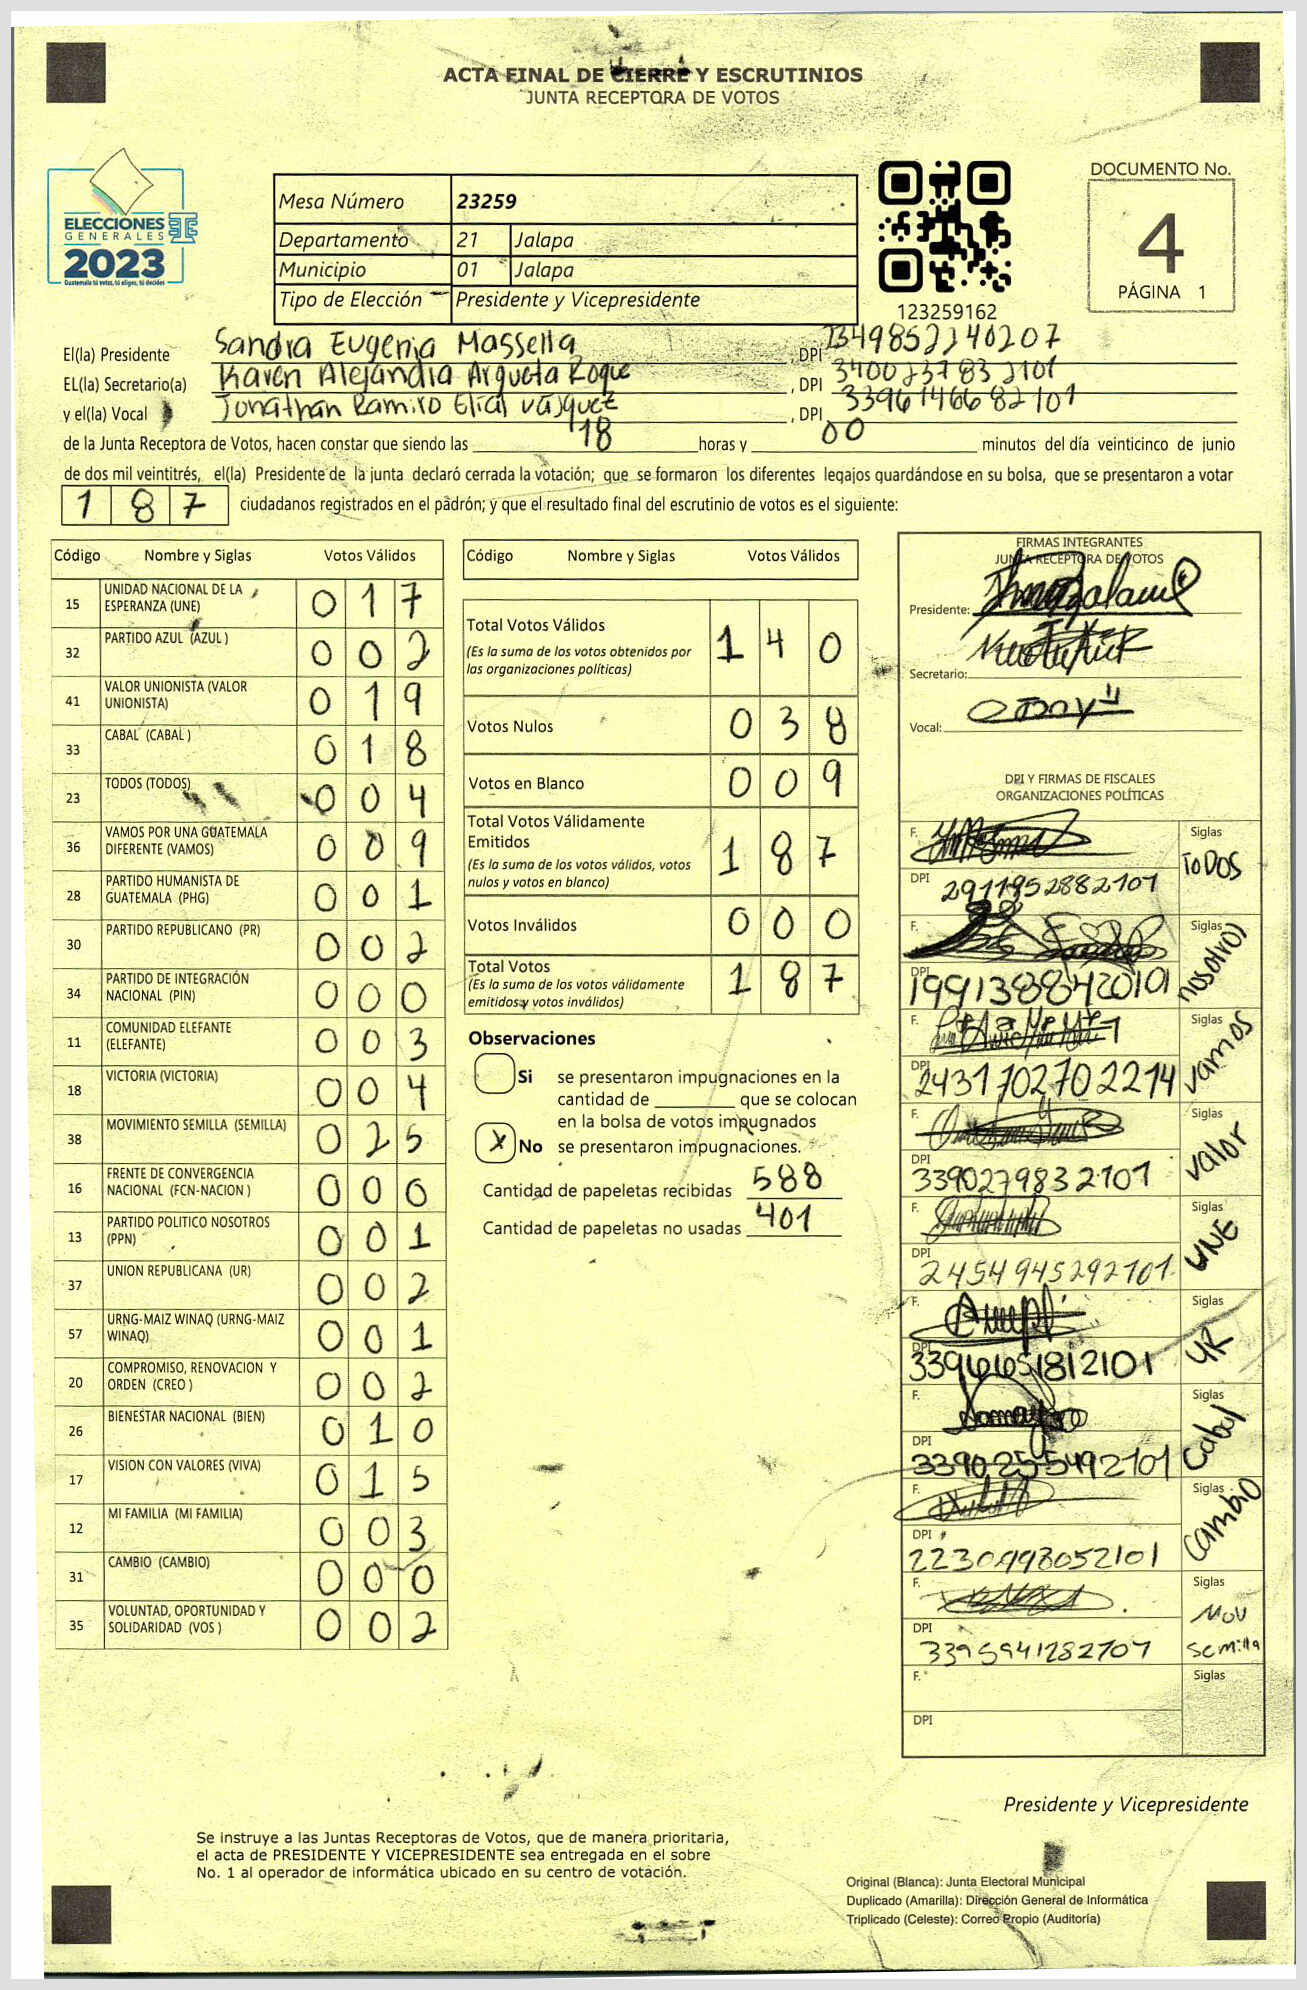 ACTA FINAL DE CIERRE Y ESCRUTINIOS
JUNTA RECEPTORA DE VOTOS
ELECCIONES
GENERALES
2023
Guatemala tú votas, tú eliges, tú decides
Mesa Número 23259
Departamento 21 Jalapa
Municipio 01 Jalapa
Tipo de Elección Presidente y Vicepresidente
123259162
DOCUMENTO No.
4
PÁGINA 1
El(la) Presidente Sandra Eugenia Massella, DPI 2349852240207
EL(la) Secretario(a) Karen Alejandra Argueta Roque, DPI 3400237832101
y el(la) Vocal Jonathan Ramiro Elías Vásquez, DPI 3396146682101
de la Junta Receptora de Votos, hacen constar que siendo las 18 horas y 00 minutos del día veinticinco de junio
de dos mil veintitrés, el(la) Presidente de la junta declaró cerrada la votación; que se formaron los diferentes legajos guardándose en su bolsa, que se presentaron a votar
187 ciudadanos registrados en el padrón; y que el resultado final del escrutinio de votos es el siguiente:
Código Nombre y Siglas Votos Válidos
15 UNIDAD NACIONAL DE LA ESPERANZA (UNE) 017
32 PARTIDO AZUL (AZUL ) 002
41 VALOR UNIONISTA (VALOR UNIONISTA) 019
33 CABAL (CABAL ) 018
23 TODOS (TODOS) 004
36 VAMOS POR UNA GUATEMALA DIFERENTE (VAMOS) 009
28 PARTIDO HUMANISTA DE GUATEMALA (PHG) 001
30 PARTIDO REPUBLICANO (PR) 002
34 PARTIDO DE INTEGRACIÓN NACIONAL (PIN) 000
11 COMUNIDAD ELEFANTE (ELEFANTE) 003
18 VICTORIA (VICTORIA) 004
38 MOVIMIENTO SEMILLA (SEMILLA) 025
16 FRENTE DE CONVERGENCIA NACIONAL (FCN-NACION ) 000
13 PARTIDO POLITICO NOSOTROS (PPN) 001
37 UNION REPUBLICANA (UR) 002
57 URNG-MAIZ WINAQ (URNG-MAIZ WINAQ) 001
20 COMPROMISO, RENOVACION Y ORDEN (CREO ) 002
26 BIENESTAR NACIONAL (BIEN) 010
17 VISION CON VALORES (VIVA) 015
12 MI FAMILIA (MI FAMILIA) 003
31 CAMBIO (CAMBIO) 000
35 VOLUNTAD, OPORTUNIDAD Y SOLIDARIDAD (VOS ) 002
Código Nombre y Siglas Votos Válidos
Total Votos Válidos 140
(Es la suma de los votos obtenidos por
las organizaciones políticas)
Votos Nulos 038
Votos en Blanco 009
Total Votos Válidamente
Emitidos 187
(Es la suma de los votos válidos, votos
nulos y votos en blanco)
Votos Inválidos 000
Total Votos 187
(Es la suma de los votos válidamente
emitidos y votos inválidos)
Observaciones
Si se presentaron impugnaciones en la
cantidad de ________ que se colocan
en la bolsa de votos impugnados
X No se presentaron impugnaciones.
Cantidad de papeletas recibidas 588
Cantidad de papeletas no usadas 401
FIRMAS INTEGRANTES
JUNTA RECEPTORA DE VOTOS
Presidente:
Secretario:
Vocal:
DPI Y FIRMAS DE FISCALES
ORGANIZACIONES POLÍTICAS
F. Siglas TODOS
DPI 2911952882101
F. Siglas nosotros
DPI 1991388420101
F. Siglas Vamos
DPI 2431702702214
F. Siglas Valor
DPI 3390279832101
F. Siglas UNE
DPI 2454945292101
F. Siglas UR
DPI 3396651812101
F. Siglas Cabal
DPI 3390255492101
F. Siglas Cambio
DPI 2230998052101
F. Siglas Mov Semilla
DPI 3395941282101
F. Siglas
DPI
Presidente y Vicepresidente
Se instruye a las Juntas Receptoras de Votos, que de manera prioritaria,
el acta de PRESIDENTE Y VICEPRESIDENTE sea entregada en el sobre
No. 1 al operador de informática ubicado en su centro de votación.
Original (Blanca): Junta Electoral Municipal
Duplicado (Amarilla): Dirección General de Informática
Triplicado (Celeste): Correo Propio (Auditoría)